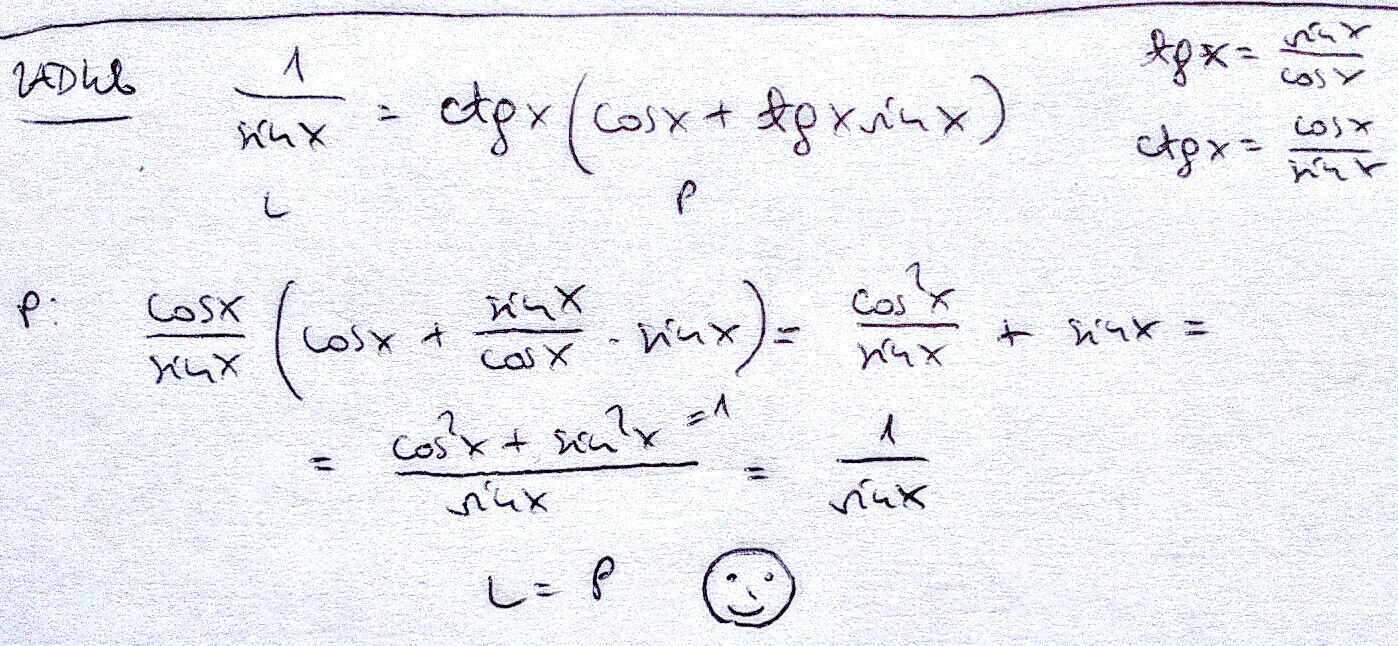 1/sin x = ctg x (cos x + tg x sin x)
L P
tg x = sin x/cos x
ctg x = cos x/sin x
P: cos x/sin x (cos x + sin x/cos x · sin x) = cos²x/sin x + sin x =
= cos²x + sin²x =1/sin x = 1/sin x
L = P